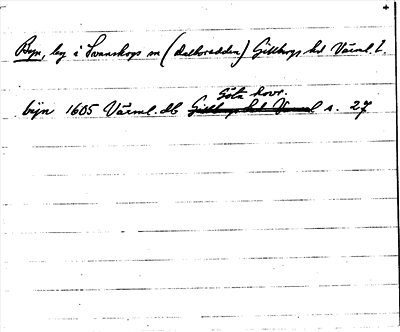 Byn, by i Svanskogs sn (dalbredden) Gillbergs hd Värml. l.
Göta hovr.
byn 1605 Värml. db Gillbergs hd Värml s. 27